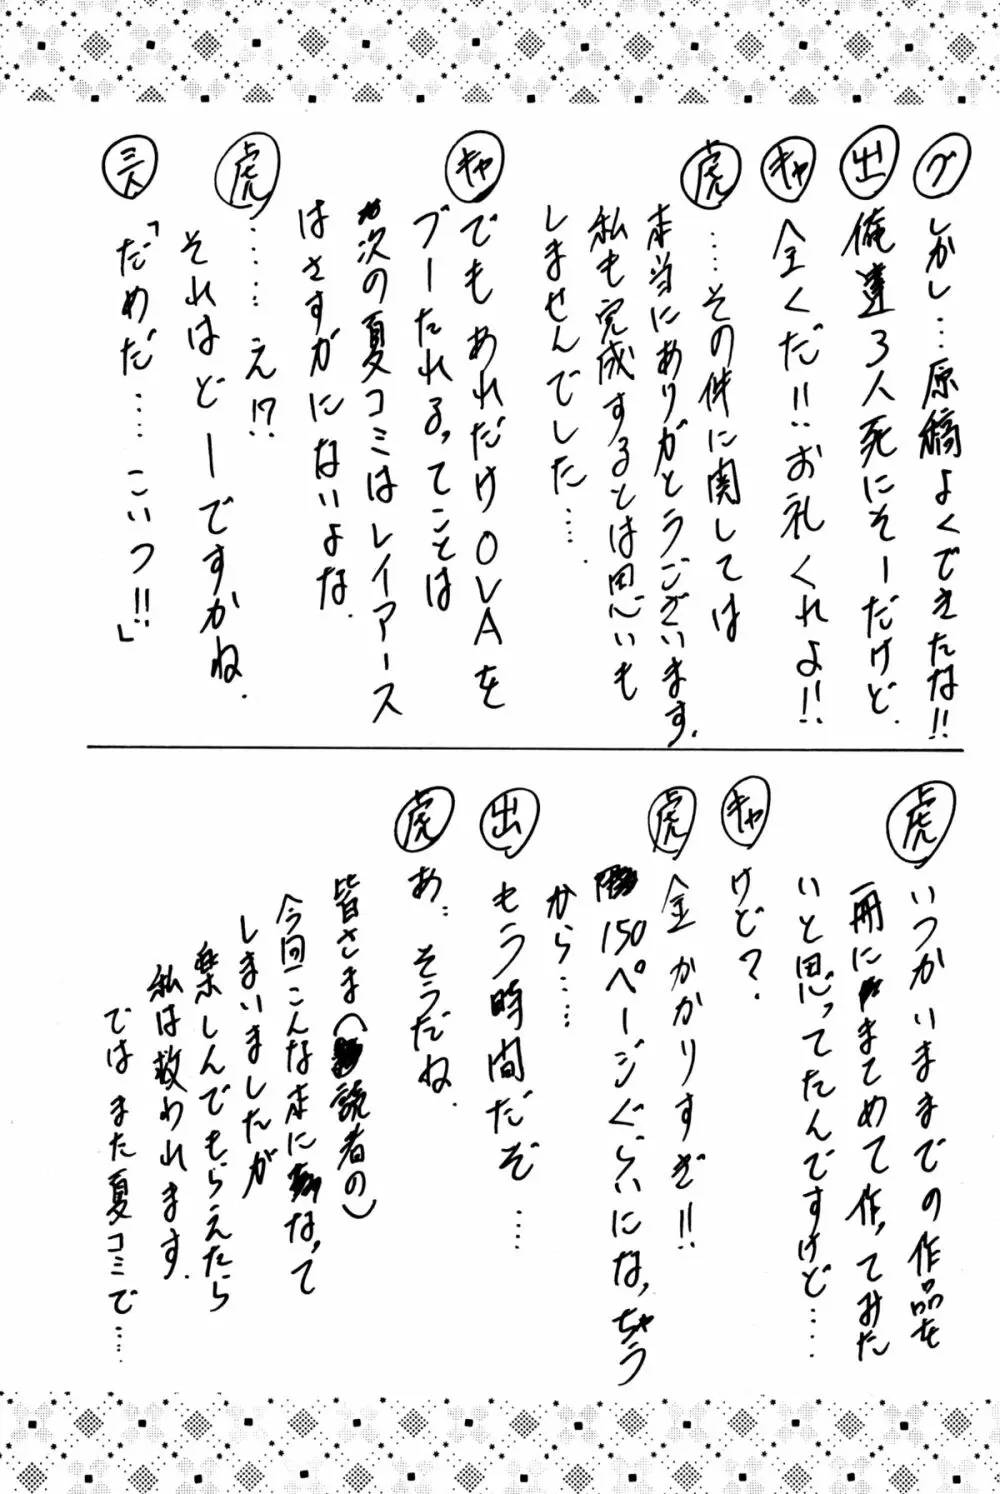 グ しかし…原稿よくできたな!!
出 俺達3人死にそーだけど.
キャ 全くだ!!お礼くれよ!!
虎 ……その件に関しては
本当にありがとうございます.
私も完成するとは思いも
しませんでした……
キャ でもあれだけOVAを
ブーたれるってことは
次の夏コミはレイアース
はさすがにないよな.
虎 ……え!?
それはどーですかね.
三人 「だめだ……こいつ!!」
虎 いつかいままでの作品を
一冊にまとめて作ってみた
いと思ってたんですけど……
キャ けど?.
虎 金かかりすぎ!!
150ページぐらいになっちゃう
から……
出 もう時間だぞ……
虎 あ..そうだね.
皆さま(読者の)
今回こんな本になって
しまいましたが
楽しんでもらえたら
私は救われます.
ではまた夏コミで……